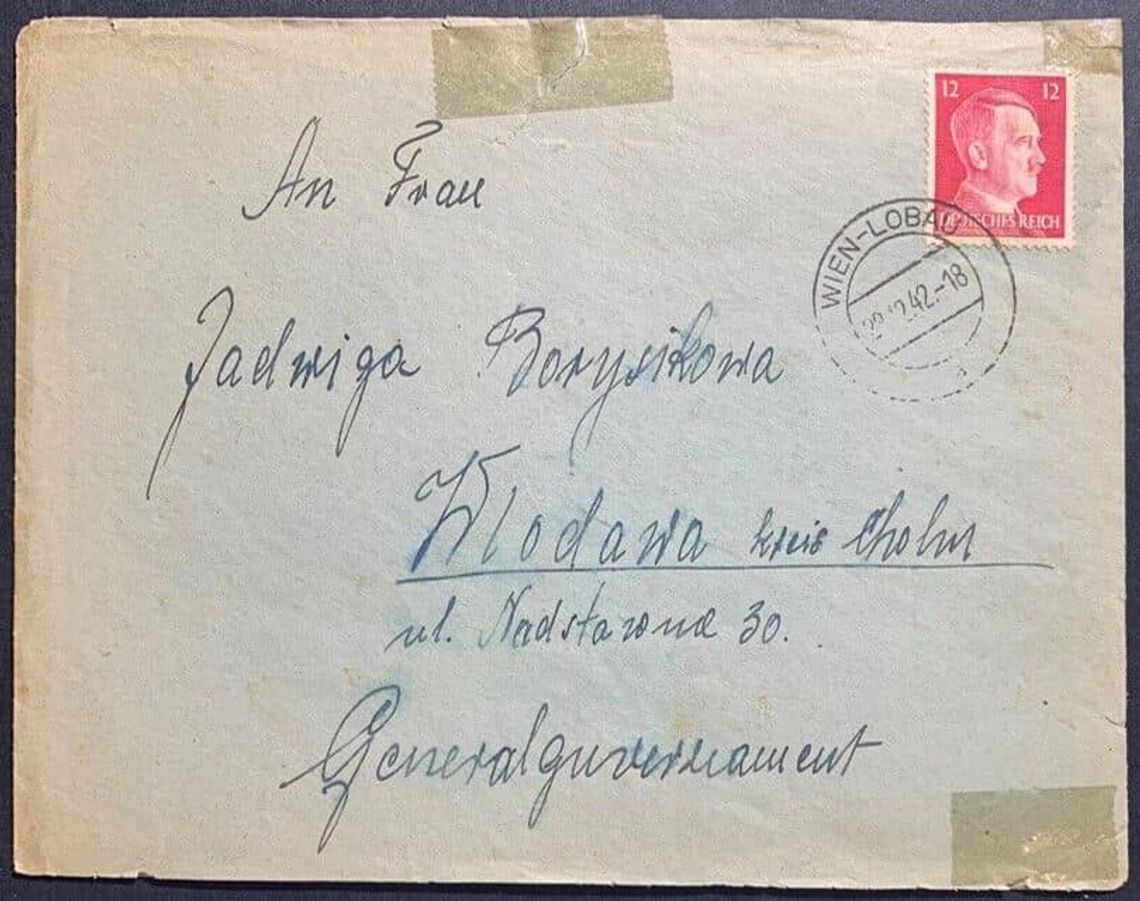 12 12
DEUTSCHES REICH
WIEN-LOBAU
12.42.-18
An Frau
Jadwiga Borysikowa
Wlodawa Kreis Cholm
ul. Nadstawna 30.
Generalguvernament